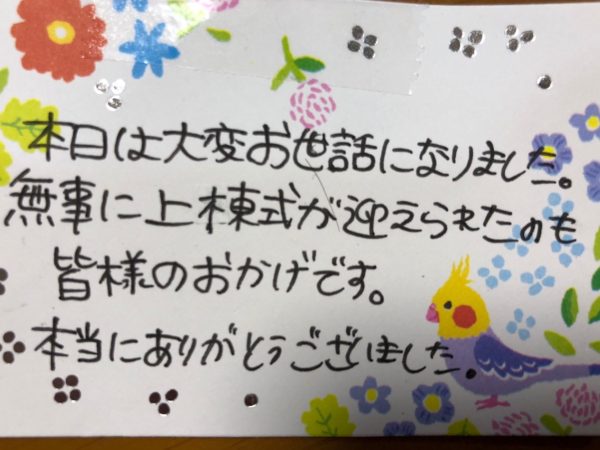 本日は大変お世話になりました。
無事に上棟式が迎えられたのも
皆様のおかげです。
本当にありがとうございました。